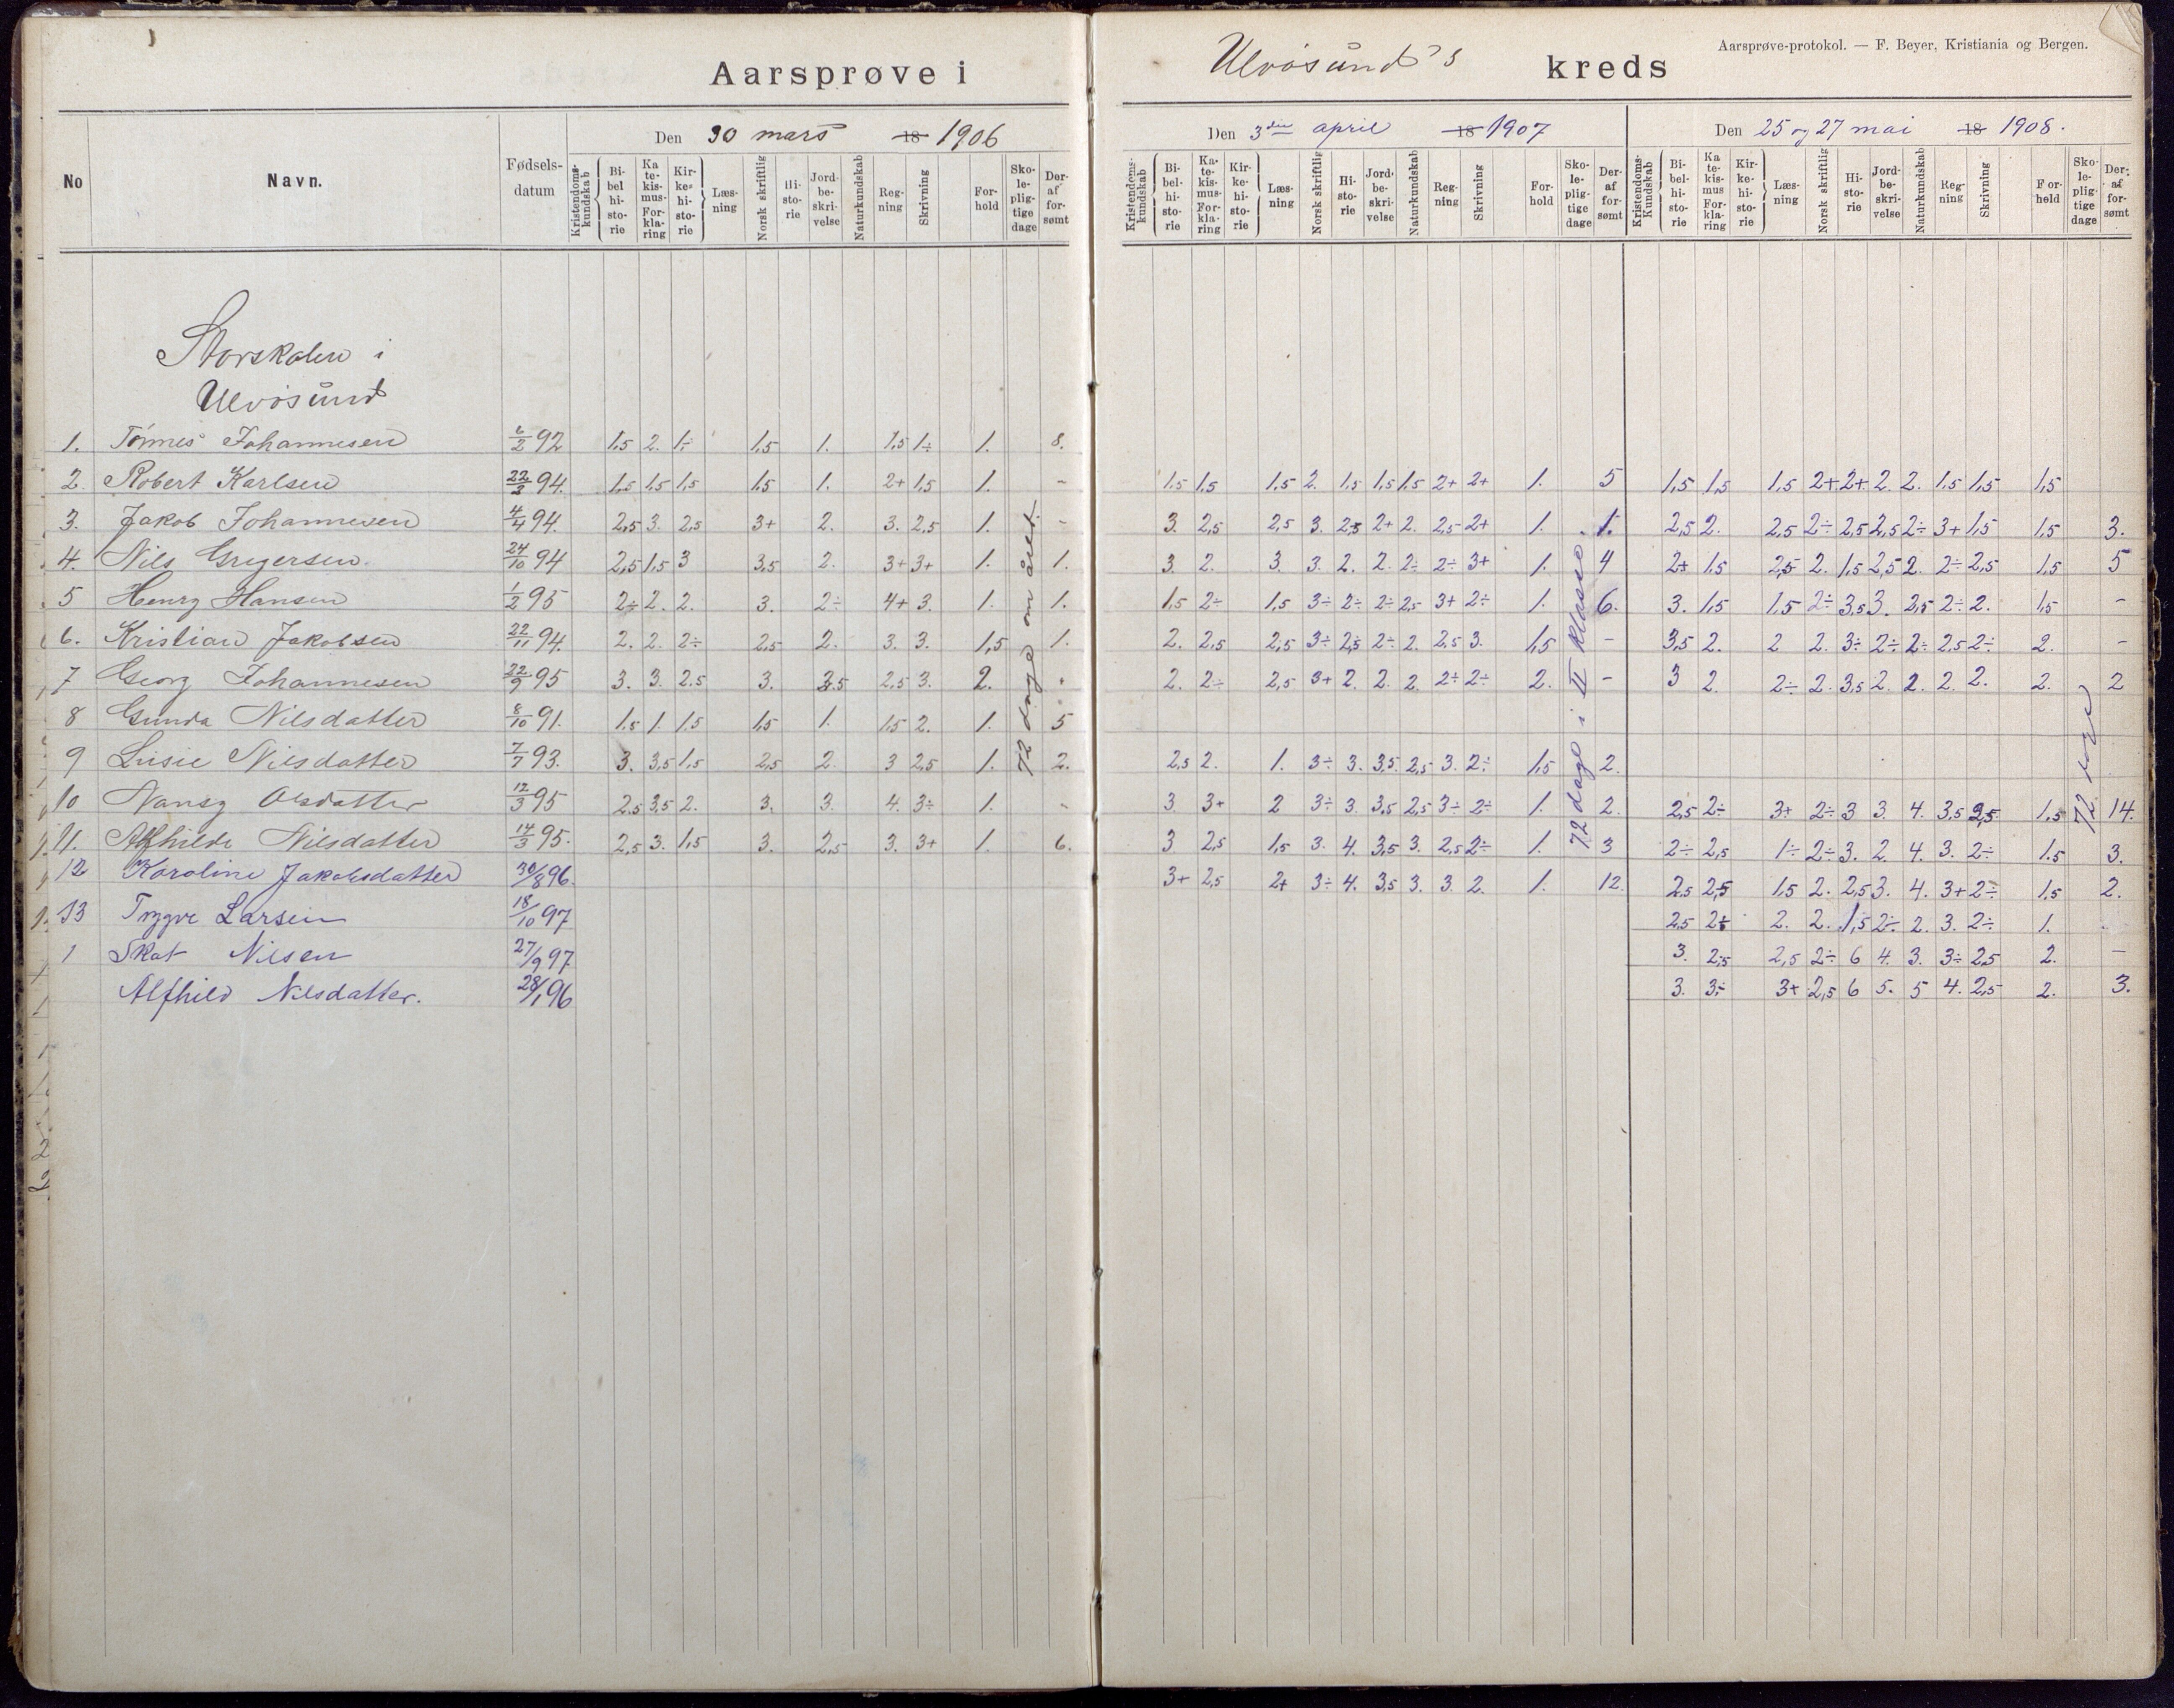 Aarsprøve i Ulvøsund's kreds
Aarsprøve-protokol. — F. Beyer, Kristiania og Bergen.
No Navn. Fødsels-datum
Den 30 mars 18 1906
Kristendoms-kundskab Bi-bel-hi-sto-rie Ka-te-kis-mus-For-kla-ring Kir-ke-hi-sto-rie Læs-ning Norsk skriftlig Hi-sto-rie Jord-be-skri-velse Naturkundskab Reg-ning Skrivning For-hold Sko-le-plig-tige dage Der-af for-sømt
Den 3die april 18 1907
Kristendoms-kundskab Bi-bel-hi-sto-rie Ka-te-kis-mus-For-kla-ring Kir-ke-hi-sto-rie Læs-ning Norsk skriftlig Hi-sto-rie Jord-be-skri-velse Naturkundskab Reg-ning Skrivning For-hold Sko-le-plig-tige dage Der-af for-sømt
Den 25 og 27 mai 18 1908.
Kristendoms-Kundskab Bi-bel-hi-sto-rie Ka te-kis-mus For-kla-ring Kir-ke-hi-sto-rie Læs-ning Norsk skriftlig Hi-sto-rie Jord-be-skri-velse Naturkundskab Reg-ning Skrivning For-hold Sko-le-plig-tige dage Der-af for-sømt
Storskolen i
Ulvøsund
1. Tønnes Johannesen 6/2 92 1,5 2. 1÷ 1,5 1. 1,5 1÷ 1. 8.
2. Robert Karlsen 22/2 94. 1,5 1,5 1,5 1,5 1. 2+ 1,5 1. - 1,5 1,5 1,5 2. 1,5 1,5 1,5 2+ 2+ 1. 5 1,5 1,5 1,5 2+ 2+ 2. 2. 1,5 1,5 1,5
3. Jakob Johannesen 4/4 94. 2,5 3. 2,5 3+ 2. 3. 2,5 1. - 3. 2,5 2,5 3. 2,5 2+ 2. 2,5 2+ 1. 1. 2,5 2. 2,5 2÷ 2,5 2,5 2÷ 3+ 1,5 1,5 3.
4. Nils Gregersen. 24/10 94 2,5 1,5 3 3,5 2. 3+ 3+ 1. 1. 3. 2. 3. 3. 2. 2. 2÷ 2÷ 3+ 1. 4 2+ 1,5 2,5 2. 1,5 2,5 2. 2÷ 2,5 1,5 5
5 Henry Hansen 1/2 95 2÷ 2. 2. 3. 2÷ 4+ 3. 1. 1. 1,5 2÷ 1,5 3÷ 2÷ 2÷ 2,5 3+ 2÷ 1. 6. 3. 1,5 1,5 2÷ 3,5 3. 2,5 2÷ 2. 1,5 -
6. Kristian Jakobsen 22/11 94. 2. 2. 2÷ 2,5 2. 3. 3. 1,5 1. 2. 2,5 2,5 3÷ 2,5 2÷ 2. 2,5 3. 1,5 - 3,5 2. 2 2. 3÷ 2÷ 2÷ 2,5 2÷ 2. -
7 Georg Johannesen 22/9 95 3. 3. 2.5 3. 2,5 3. 2. 2. 2÷ 2,5 3+ 2. 2. 2. 2÷ 2÷ 2. - 3 2. 2÷ 2. 3,5 2. 2. 2. 2. 2. 2
8 Gunda Nilsdatter 8/10 91. 1,5 1. 1,5 1,5 1. 1,5 2. 1. 5
9 Lusie Nilsdatter 7/7 93. 3. 3,5 1,5 2,5 2. 3 2,5 1. 2. 2,5 2. 1. 3÷ 3. 3,5. 2,5 3. 2÷ 1,5 2.
10 Nansy Olsdatter 12/3 95 2.5 3,5 2. 3. 3. 4. 3÷ 1. - 3. 3+ 2 3÷ 3. 3,5 2,5 3÷ 2÷ 1. 2. 2,5 2÷ 3+ 2÷ 3 3. 4. 3,5 1,5 14.
11. Alfhilde Nilsdatter 14/3 95. 2,5 3. 1,5 3. 2,5 3. 3+ 1. 6. 3 2,5 1,5 3. 4. 3,5 3. 2,5 2÷ 1. 3 2÷ 2,5 1÷ 2÷ 3. 2. 4. 3. 2÷ 1.5 3.
12 Karoline Jakobsdatter 30/8 96. 3+ 2,5 2+ 3÷ 4. 3,5 3. 3. 2. 1. 12. 2.5 2,5 1,5 2. 2,5 3. 4. 3+ 2÷ 1,5 2.
13 Trygve Larsen 18/10 97 2.5 2÷ 2. 2. 1,5 2÷ 2. 3. 2÷ 1.
1 Skat Nilsen 27/9 97 3. 2,5 2,5 2÷ 6 4. 3. 3÷ 2,5 2. -
Alfhild Nilsdatter. 28/1 96 3. 3÷ 3+ 2,5 6 5. 5 4. 2,5 2. 3.
72 dage om året.
72 dage i II klasse.
72 dage